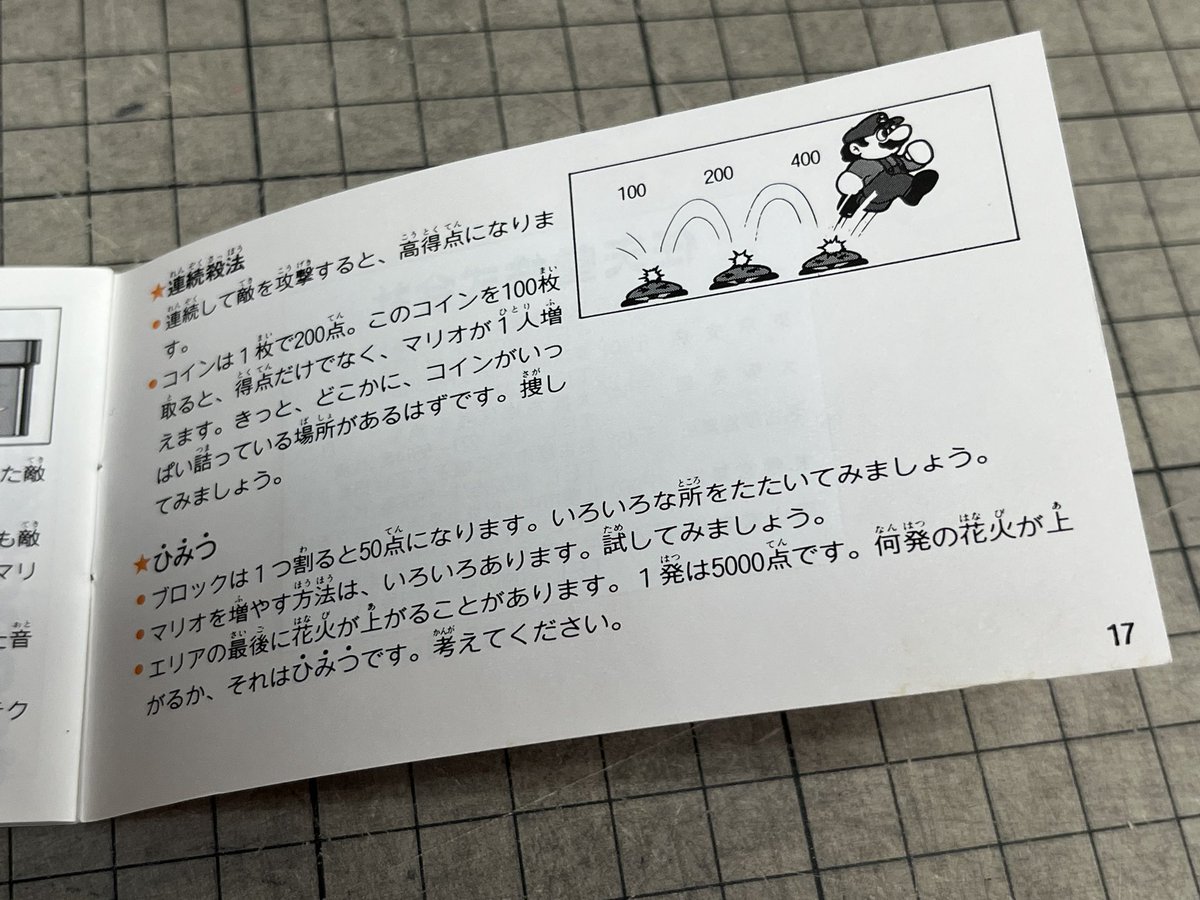 た敵
も敵
マリ
と音
テク
100
200
400
★連続殺法
・連続して敵を攻撃すると、高得点になりま
す。
・コインは1枚で200点。このコインを100枚
取ると、得点だけでなく、マリオが1人増
えます。きっと、どこかに、コインがいっ
ぱい詰っている場所があるはずです。捜し
てみましょう。
★ひみつ
・ブロックは1つ割ると50点になります。いろいろな所をたたいてみましょう。
・マリオを増やす方法は、いろいろあります。試してみましょう。
・エリアの最後に花火が上がることがあります。1発は5000点です。何発の花火が上
がるか、それはひみつです。考えてください。
17